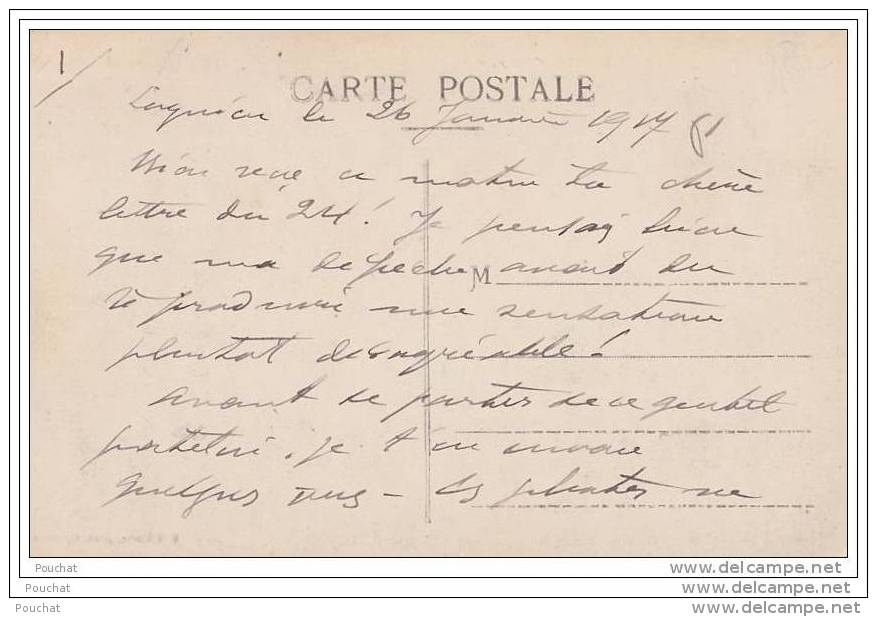 1
CARTE POSTALE
le 26 Janvier 1917
reçu ce matin ta chère
lettre du 24! Je pensais bien
que ma dépêche avait du
te produire une sensation
plutot désagréable!
avant de partir de ce gentil
je t'en envoie
quelques vues - les photos ne
M
Pouchat
delcampe.net
Pouchat
www.delcampe.net
Pouchat
www.delcampe.net